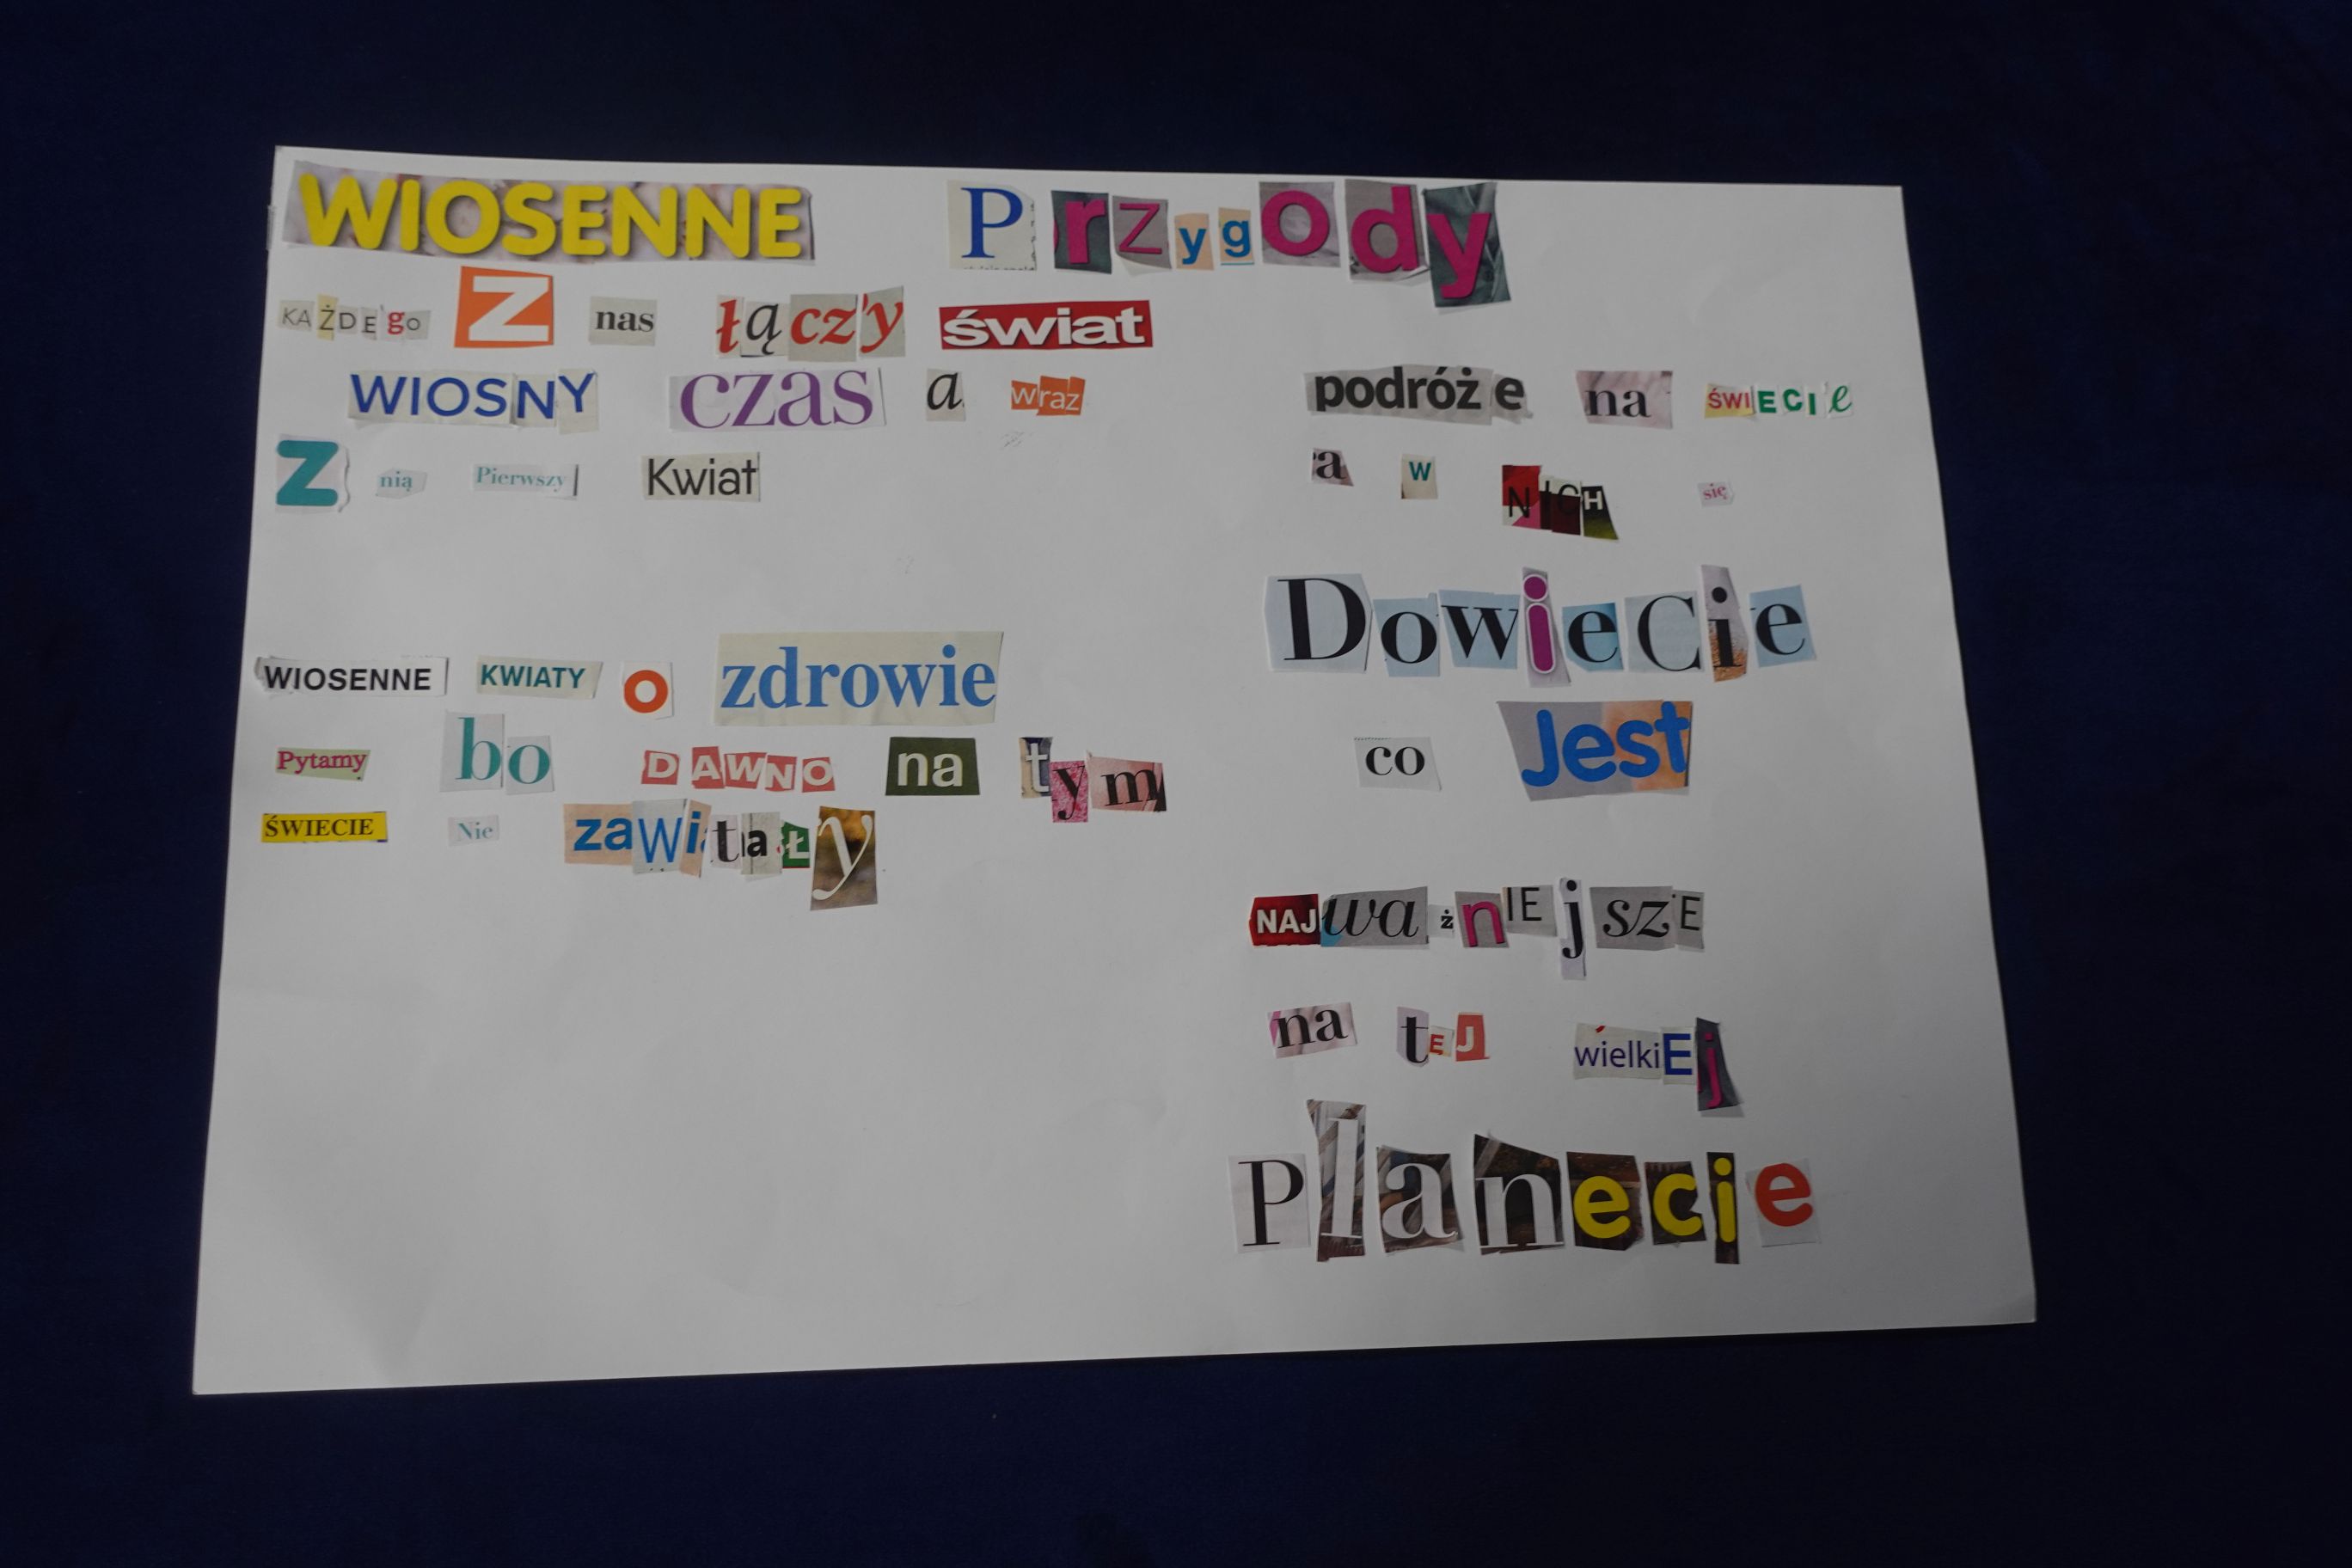 WIOSENNE Przygody
KAŻDEgo Z nas łączy świat
WIOSNY czas a wraz
Z nią Pierwszy Kwiat
WIOSENNE KWIATY O zdrowie
Pytamy bo DAWNO na tym
ŚWIECIE Nie zaWitaŁy
podróże na ŚWIECIe
a w NICH się
DowieCie
co Jest
NAJważnIEjszE
na tEJ wielkiEj
Planecie